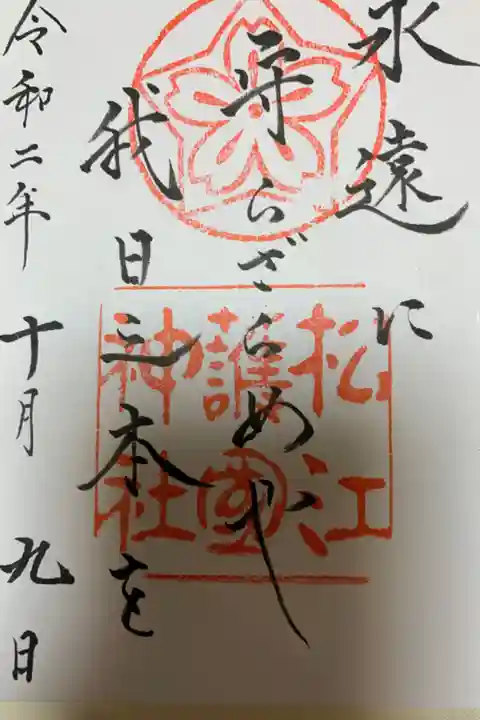 永遠に
守らざらめや
我日之本を
令和二年 十月 九日
松江
護國
神社